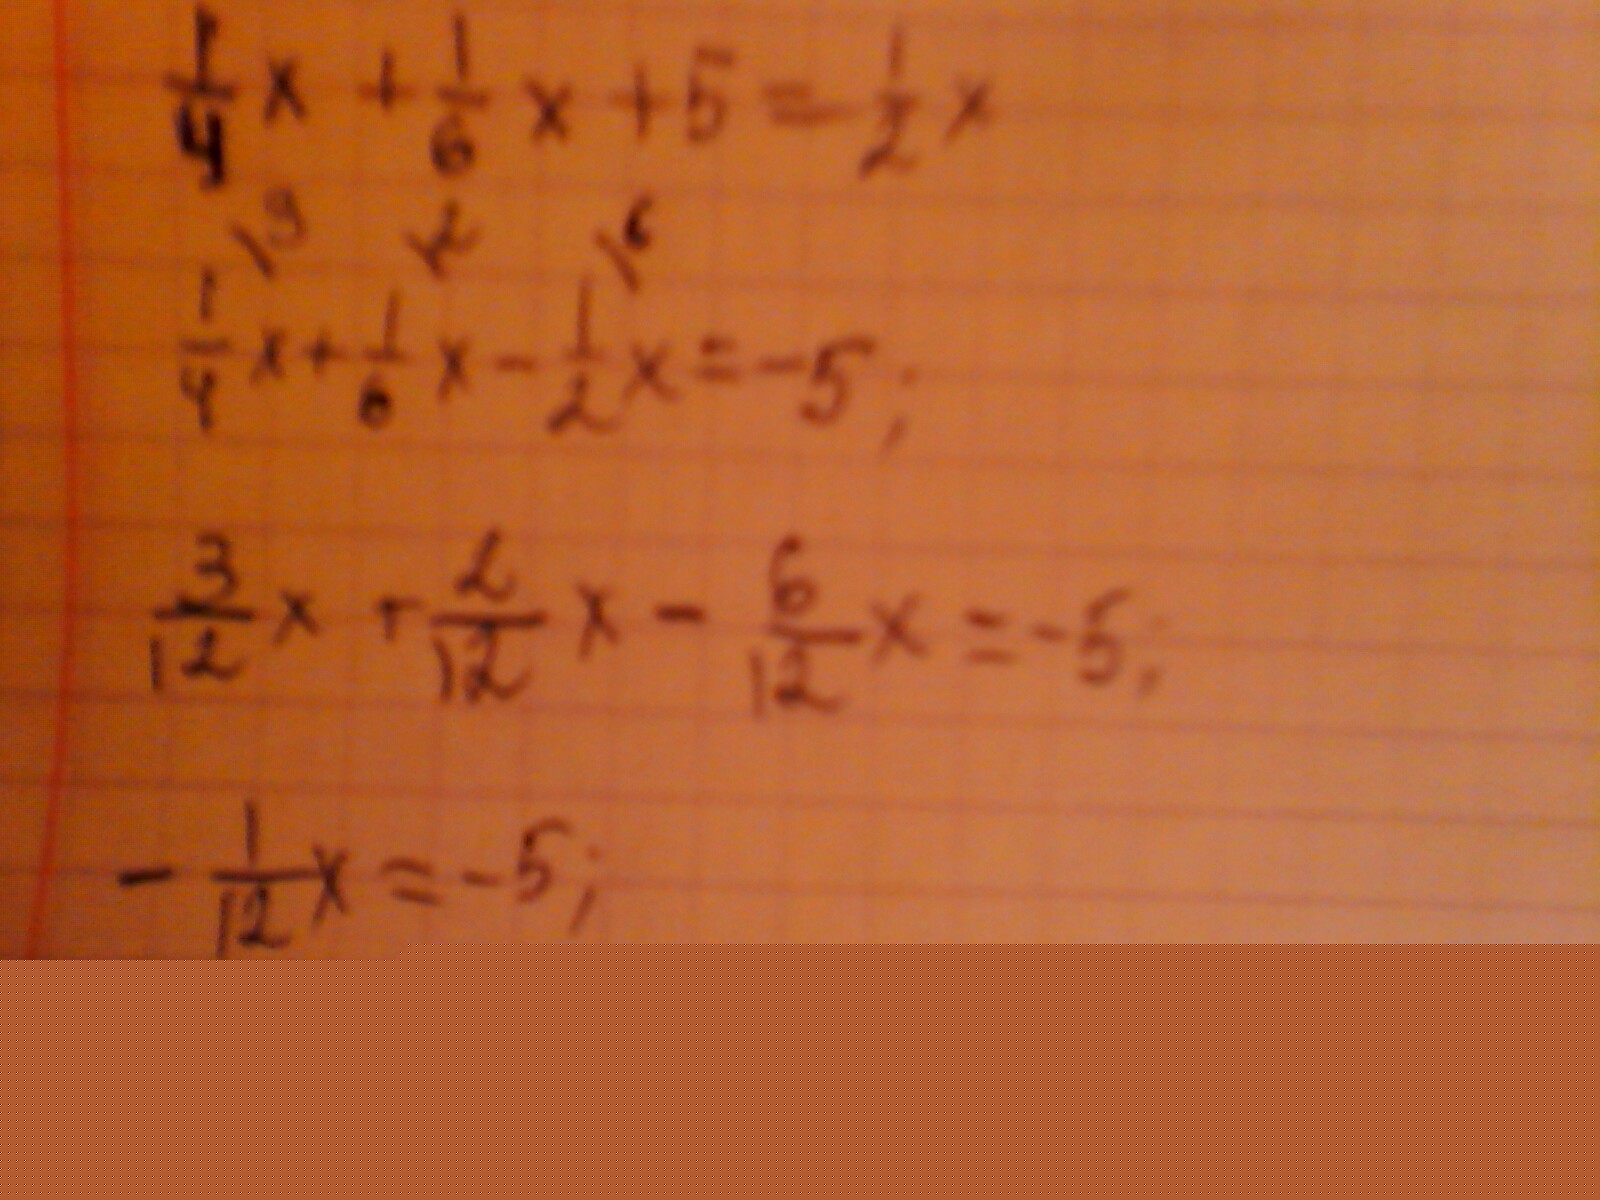 1/4 x + 1/6 x + 5 = 1/2 x
\3 \2 \6
1/4 x + 1/6 x - 1/2 x = -5;
3/12 x + 2/12 x - 6/12 x = -5;
- 1/12 x = -5;